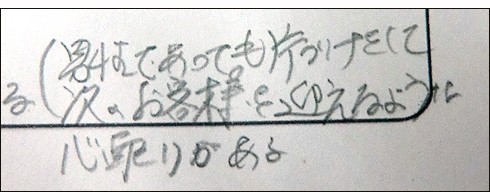 (男性であっても)片づけをして
る 次のお客様を迎えるように
心配りがある